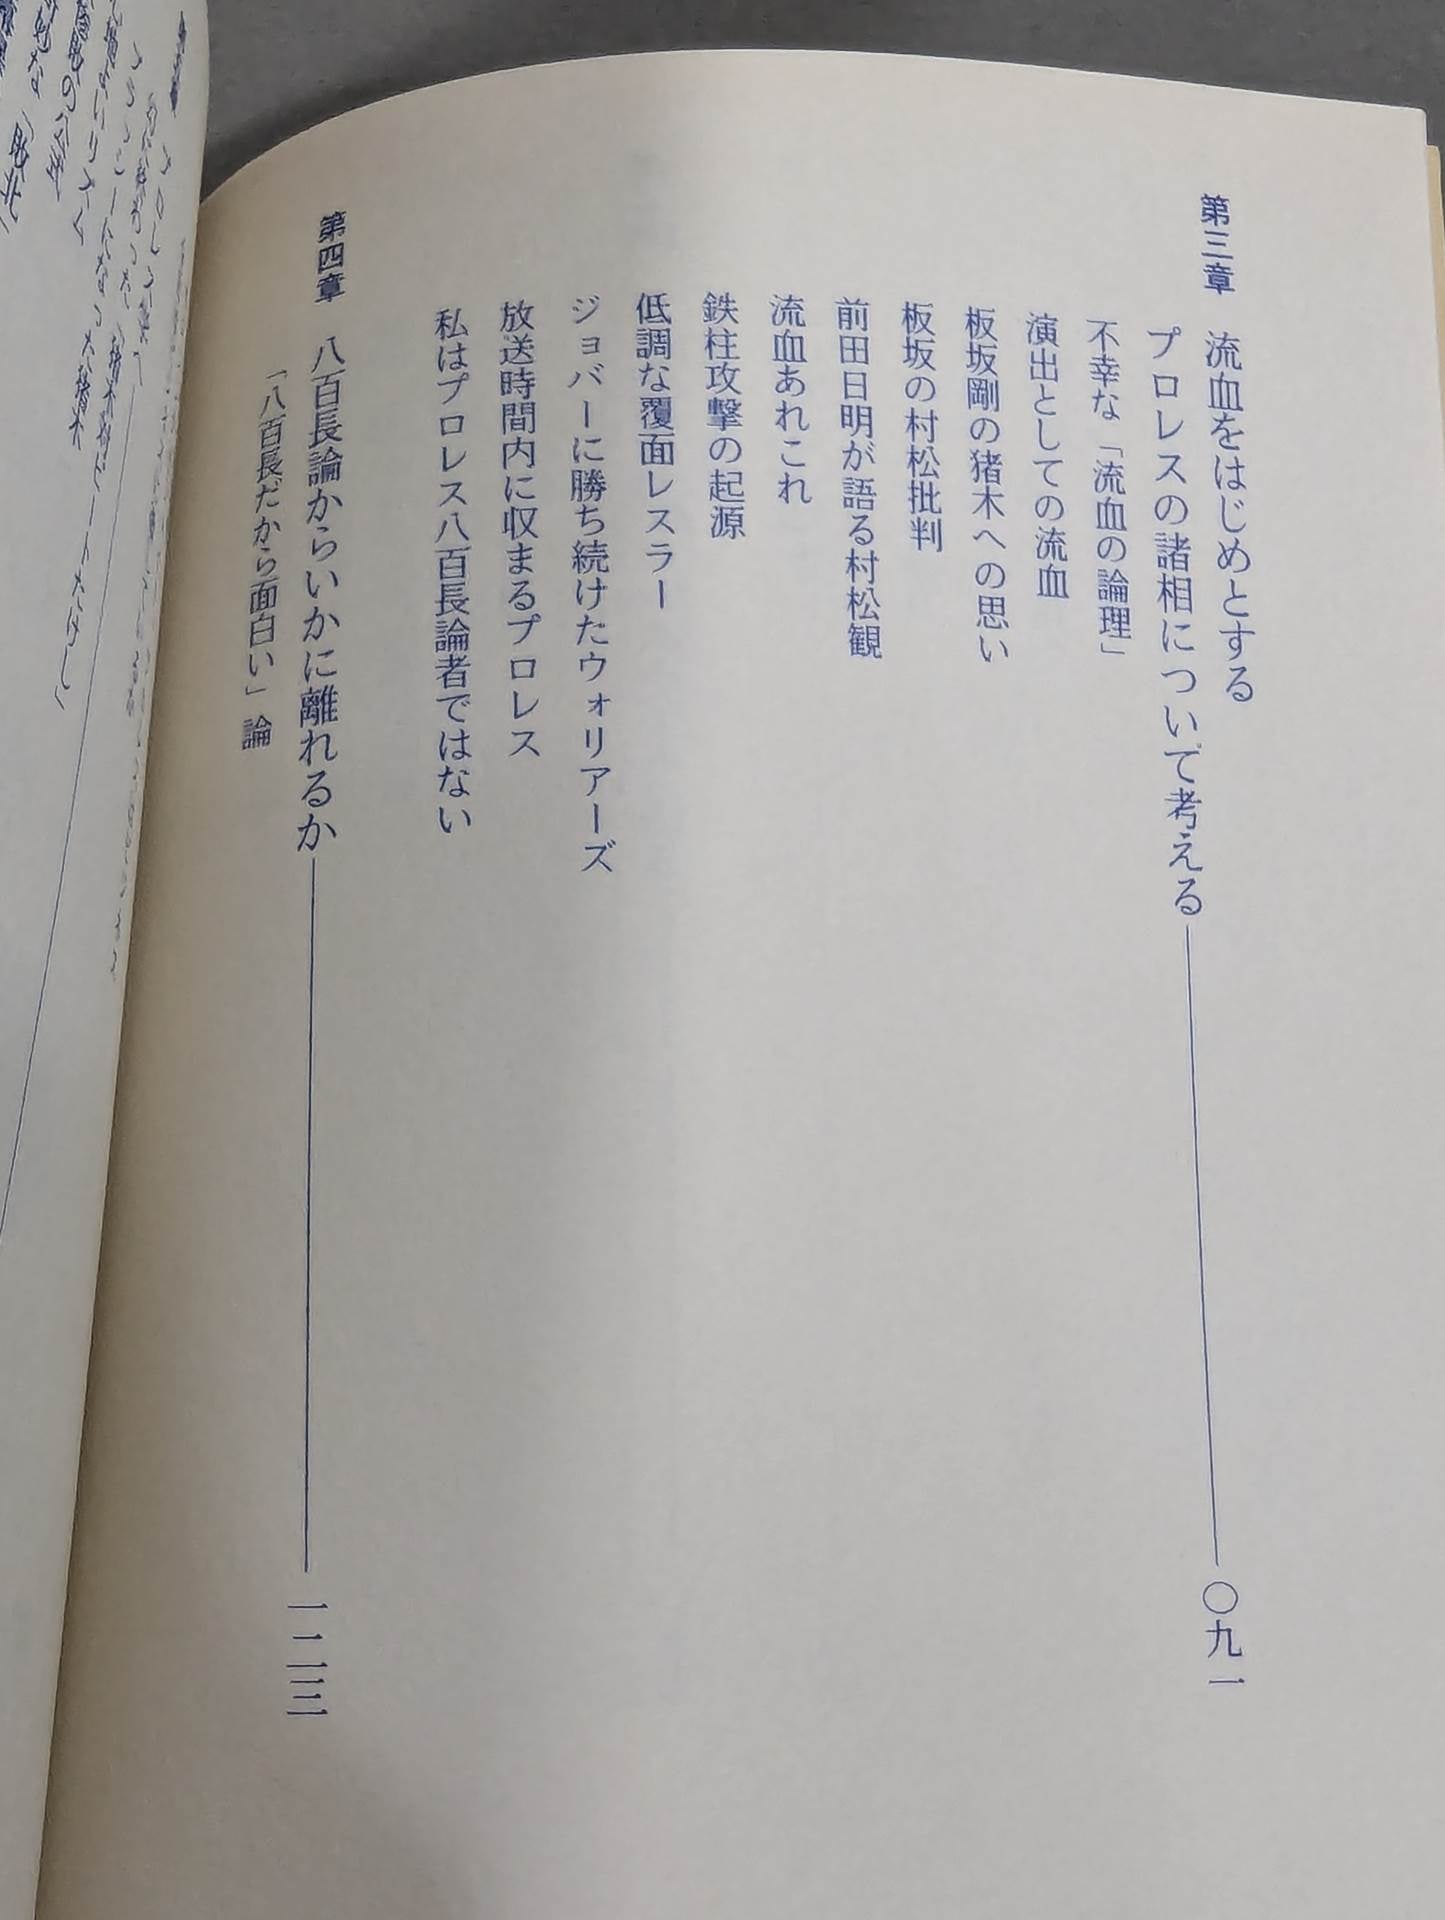 第三章　流血をはじめとする
プロレスの諸相について考える　〇九一
不幸な「流血の論理」
演出としての流血
板坂剛の猪木への思い
板坂の村松批判
前田日明が語る村松観
流血あれこれ
鉄柱攻撃の起源
低調な覆面レスラー
ジョバーに勝ち続けたウォリアーズ
放送時間内に収まるプロレス
私はプロレス八百長論者ではない
第四章　八百長論からいかに離れるか　一二三
「八百長だから面白い」論